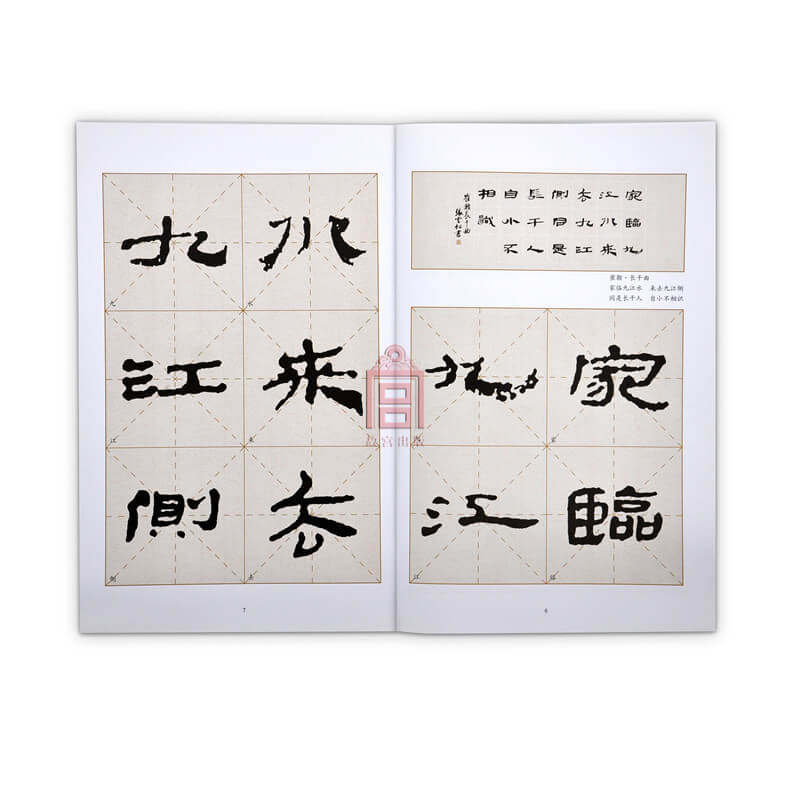 家臨九
江水來
去九江
側同是
長干人
自小不
相識
崔顥長干曲
崔颢·长干曲
家临九江水 来去九江侧
同是长干人 自小不相识
家臨
九江
6
水來去
九江側
7
故宫出版